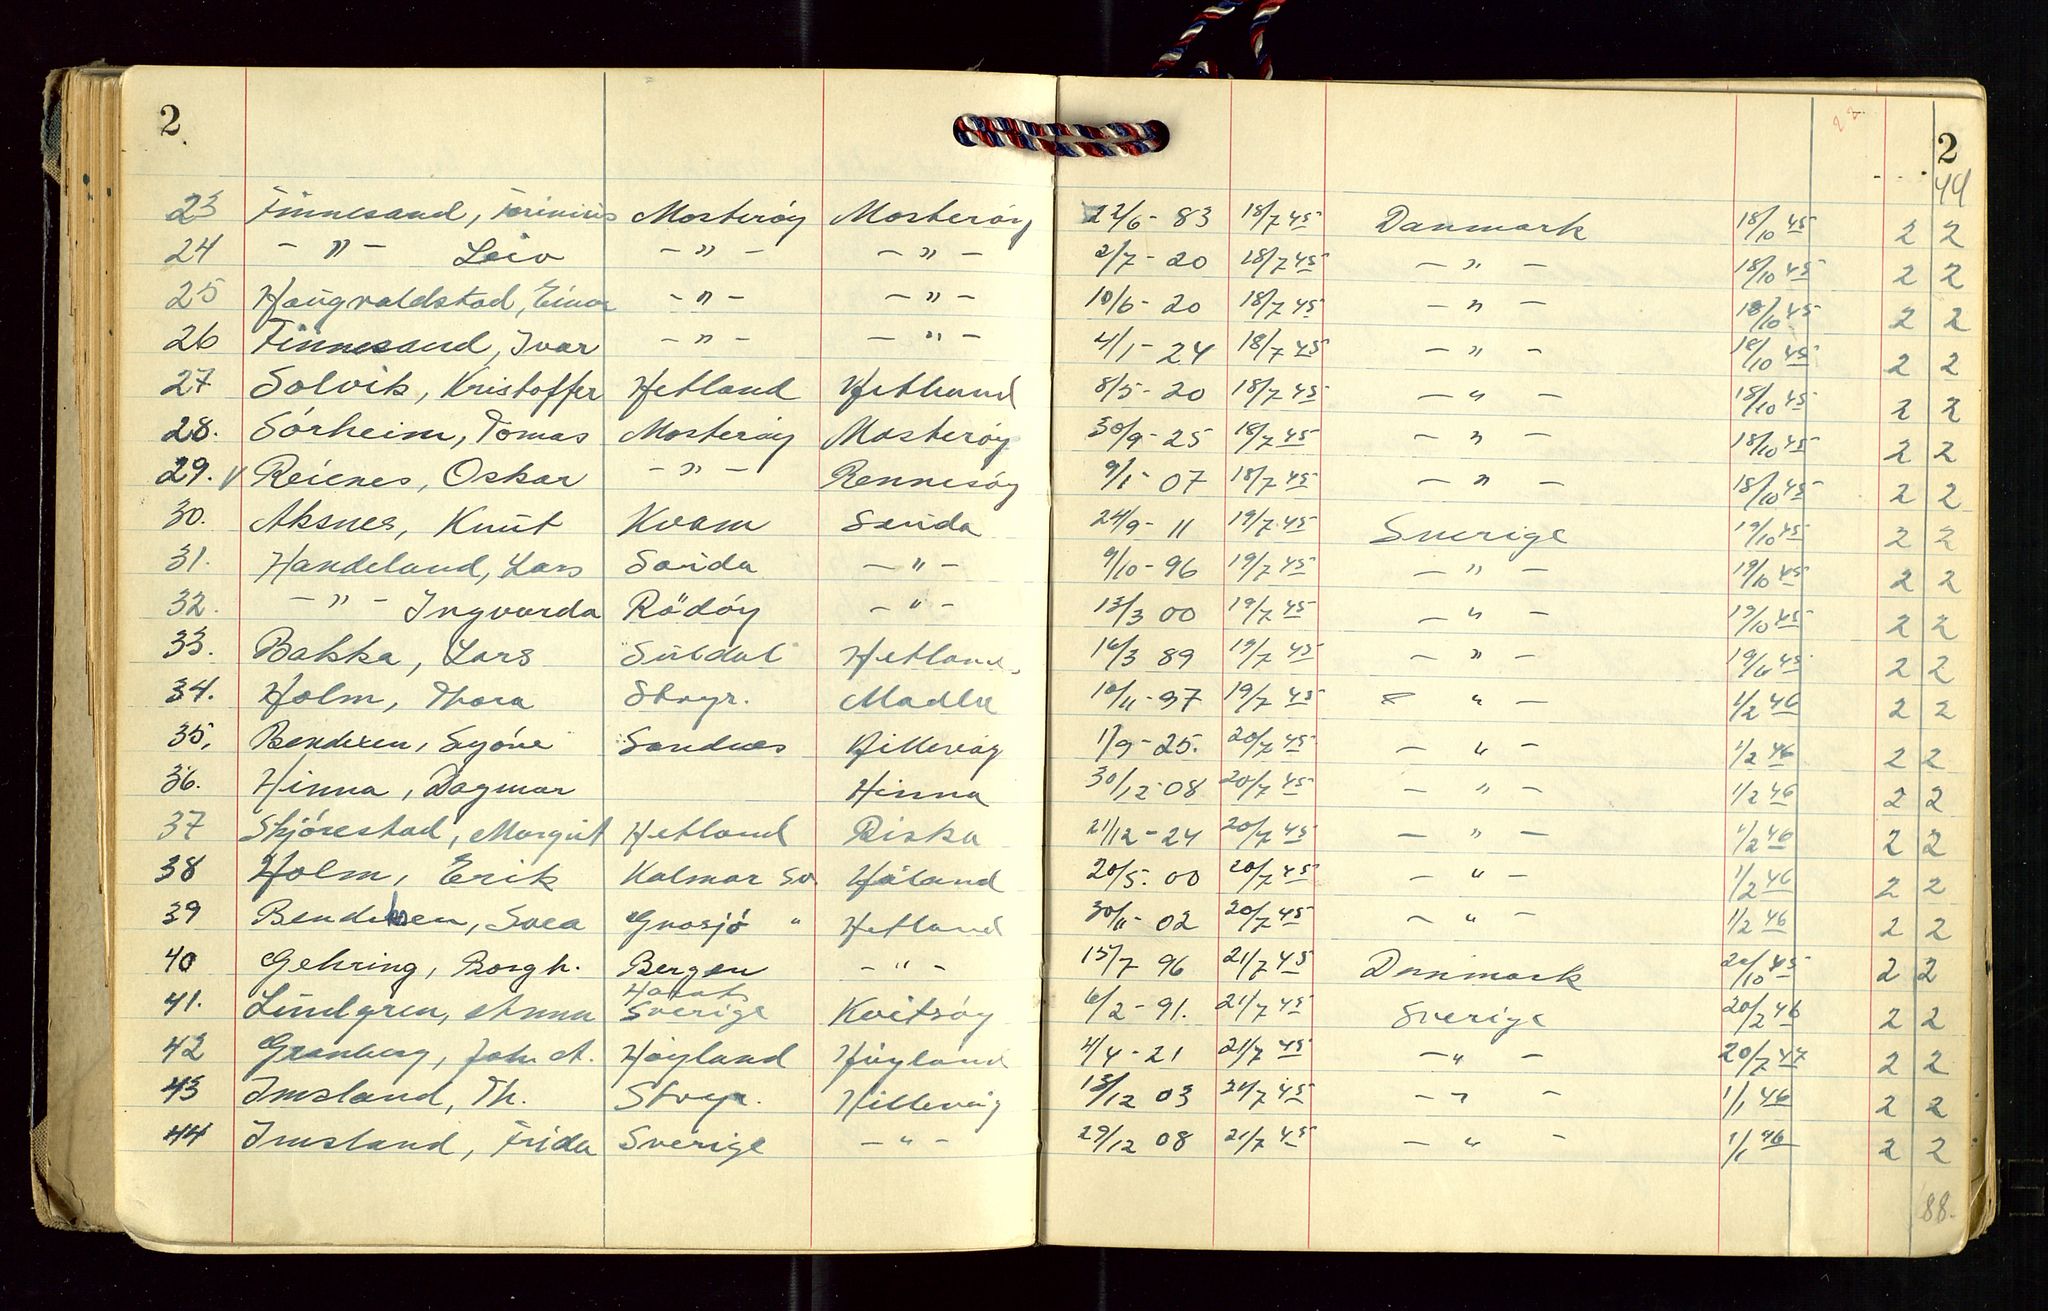 2 2
44
23 Finnesand, Mosterøy Mosterøy 22/6-83 18/7 45 Danmark 18/10 45 2 2
24 -"- Leiv -"- -"- 2/7-20 18/7 45 -"- 18/10 45 2 2
25 Haugvaldstad, Einar -"- -"- 10/6-20 18/7 45 -"- 18/10 45 2 2
26 Finnesand, Ivar -"- -"- 4/1-24 18/7 45 -"- 18/10 45 2 2
27 Solvik, Kristoffer Hetland Hetland 8/5-20 18/7 45 -"- 18/10 45 2 2
28. Sørheim, Tomas Mosterøy Mosterøy 30/9-25 18/7 45 -"- 18/10 45 2 2
29. v Reienes, Oskar -"- Rennesøy 9/1-07 18/7 45 -"- 18/10 45 2 2
30. Aksnes, Knut Kvam Sauda 24/9-11 19/7 45 Sverige 19/10 45 2 2
31. Handeland, Lars Sauda -"- 9/10-96 19/7 45 -"- 19/10 45 2 2
32. -"- Ingvarda Rödøy -"- 13/3 00 19/7 45 -"- 19/10 45 2 2
33. Bakka, Lars Suldal Hetland 16/3 89 19/7 45 -"- 19/6 45 2 2
34. Holm, Thora Stvgr. Madla 10/11-97 19/7 45 " - 1/2 46 2 2
35. Bendixen, Synøve Sandnes Hillevåg 1/9-25. 20/7 45 -"- 1/2 46 2 2
36. Hinna, Dagmar Hinna 30/12-08 20/7 45 -"- 1/2 46 2 2
37 Skjørestad, Margit Hetland Riska 21/12-24 20/7 45 -"- 1/2 46 2 2
38 Holm, Erik Kalmar Sv. Håland 20/5.00 20/7 45 -"- 1/2 46 2 2
39 Bendiksen, Svea Gnosjö " Hetland 30/11-02 20/7 45 -"- 1/2 46 2 2
40 Gehring, Borgh. Bergen -"- 15/7 96 21/7 45 Danmark 20/10 45 2 2
41. Lundgren, Anna Sverige Kvitsøy 6/2-91. 21/7 45 Sverige 20/2 46 2 2
42 Granberg, Joh. A. Høyland Høyland 4/4-21 21/7 45 -"- 20/7 47 2 2
43 Imsland, Th. Stvgr. Hillevåg 13/12 03 21/7 45 -"- 1/1 46 2 2
44 Imsland, Frida Sverige -"- 29/12 08 21/7 45 -"- 1/1 46 2 2
88.